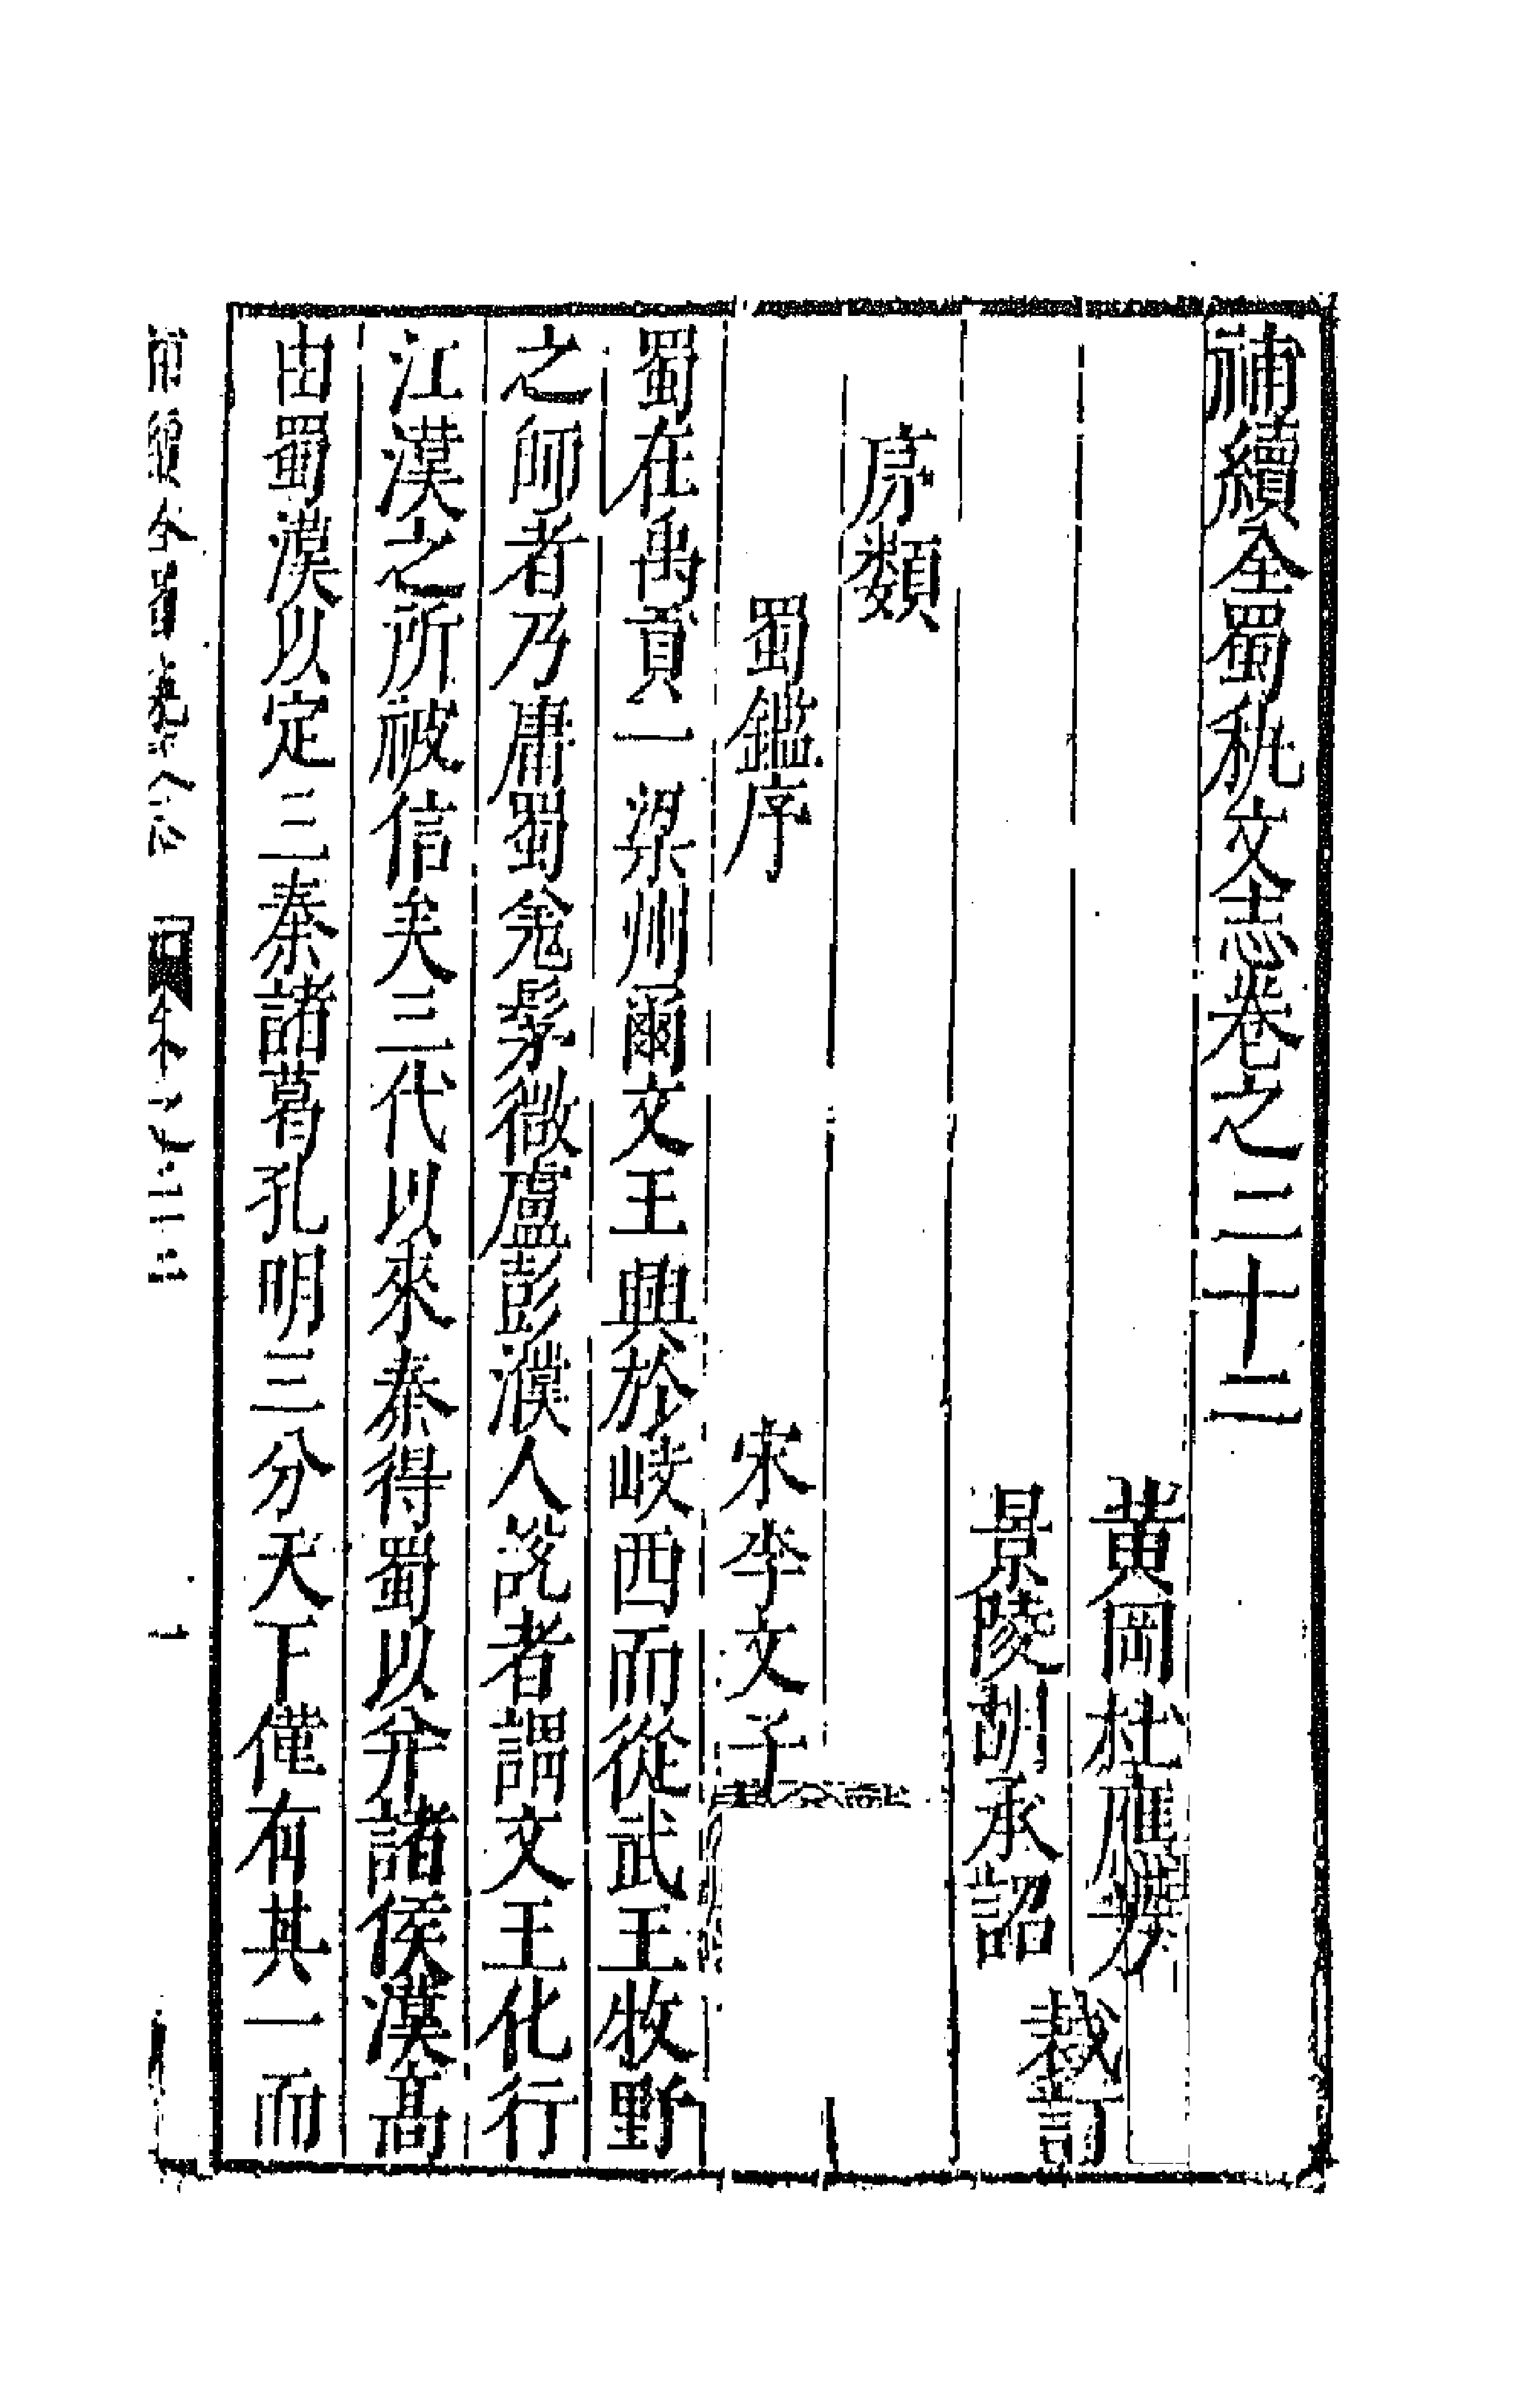 補續全蜀秇文志卷之二十二
黄岡杜應芳
景陵胡承詔
裁訂
序類
蜀鑑序　宋李文子
蜀在禹貢一梁州爾文王興於岐西而從武王牧野
之師者乃庸蜀羌髳微盧彭濮人說者謂文王化行
江漢之所被信矣三代以來秦得蜀以并諸侯漢高
由蜀漢以定三秦諸葛孔明三分天下僅有其一而